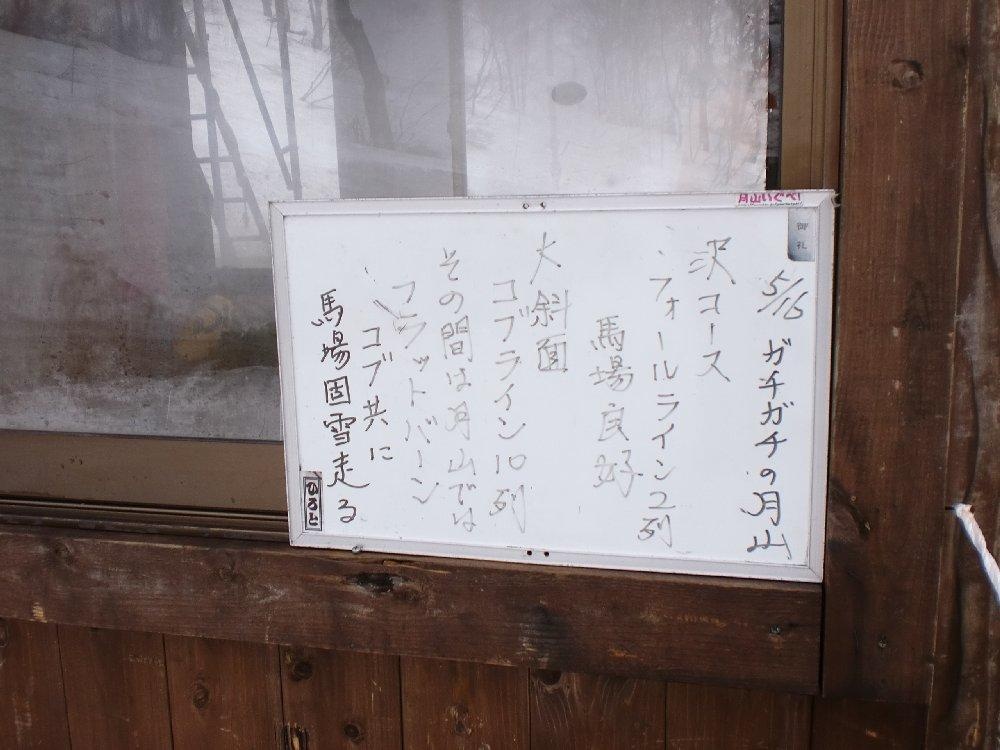 5/16 ガチガチの月山
沢コース
、フォールライン2列
馬場良好
大斜面
コブライン10列
その間は月山では
フラットバーン
、コブ共に
馬場固雪走る
ひろと
御礼